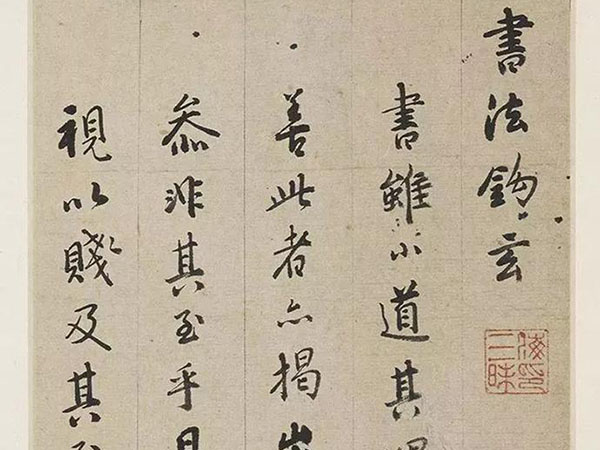 書法鉤玄
書雖小道其
善此者亦揭
叅非其至乎
視以賤及其至
三昧